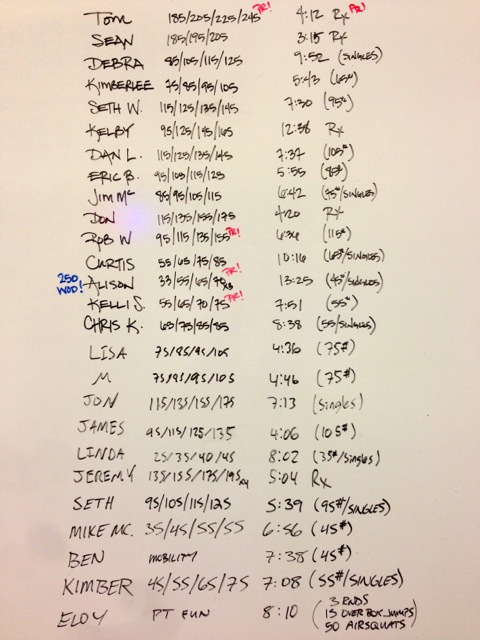 TOM 185/205/225/245 PR! 4:12 Rx PR!
SEAN 185/195/205 3:15 Rx
DEBRA 85/105/115/125 9:52 (SINGLES)
KIMBERLEE 75/85/95/105 5:43 (65#)
SETH W. 115/125/135/145 7:30 (95#)
KELBY 95/125/145/165 12:38 Rx
DAN L. 115/125/135/145 7:37 (105#)
ERIC B. 95/105/115/125 5:55 (85#)
JIM Mc 85/95/105/115 6:42 (55#/SINGLES)
DON 115/135/155/175 4:20 Rx
ROB W 95/115/135/155 PR! 6:36 (115#)
CURTIS 55/65/75/85 10:16 (65#/SINGLES)
250 WOD! ALISON 33/55/65/70x3 PR! 13:25 (45#/SINGLES)
KELLI S. 55/65/70/75 PR! 7:51 (55#)
CHRIS K. 65/75/85/85 8:38 (55/SINGLES)
LISA 75/85/95/105 4:36 (75#)
M 75/85/95/105 4:46 (75#)
JON 115/135/155/175 7:13 (singles)
JAMES 95/115/125/135 4:06 (105#)
LINDA 25/35/40/45 8:02 (35#/singles)
JEREMY 135/155/175/195 5:04 Rx
SETH 95/105/115/125 5:39 (95#/SINGLES)
MIKE MC. 35/45/55/55 6:56 (45#)
BEN MOBILITY 7:38 (45#)
KIMBER 45/55/65/75 7:08 (55#/SINGLES)
ELOY PT FUN 8:10 (3 RNDS
15 OVER BOX JUMPS
50 AIRSQUATS)